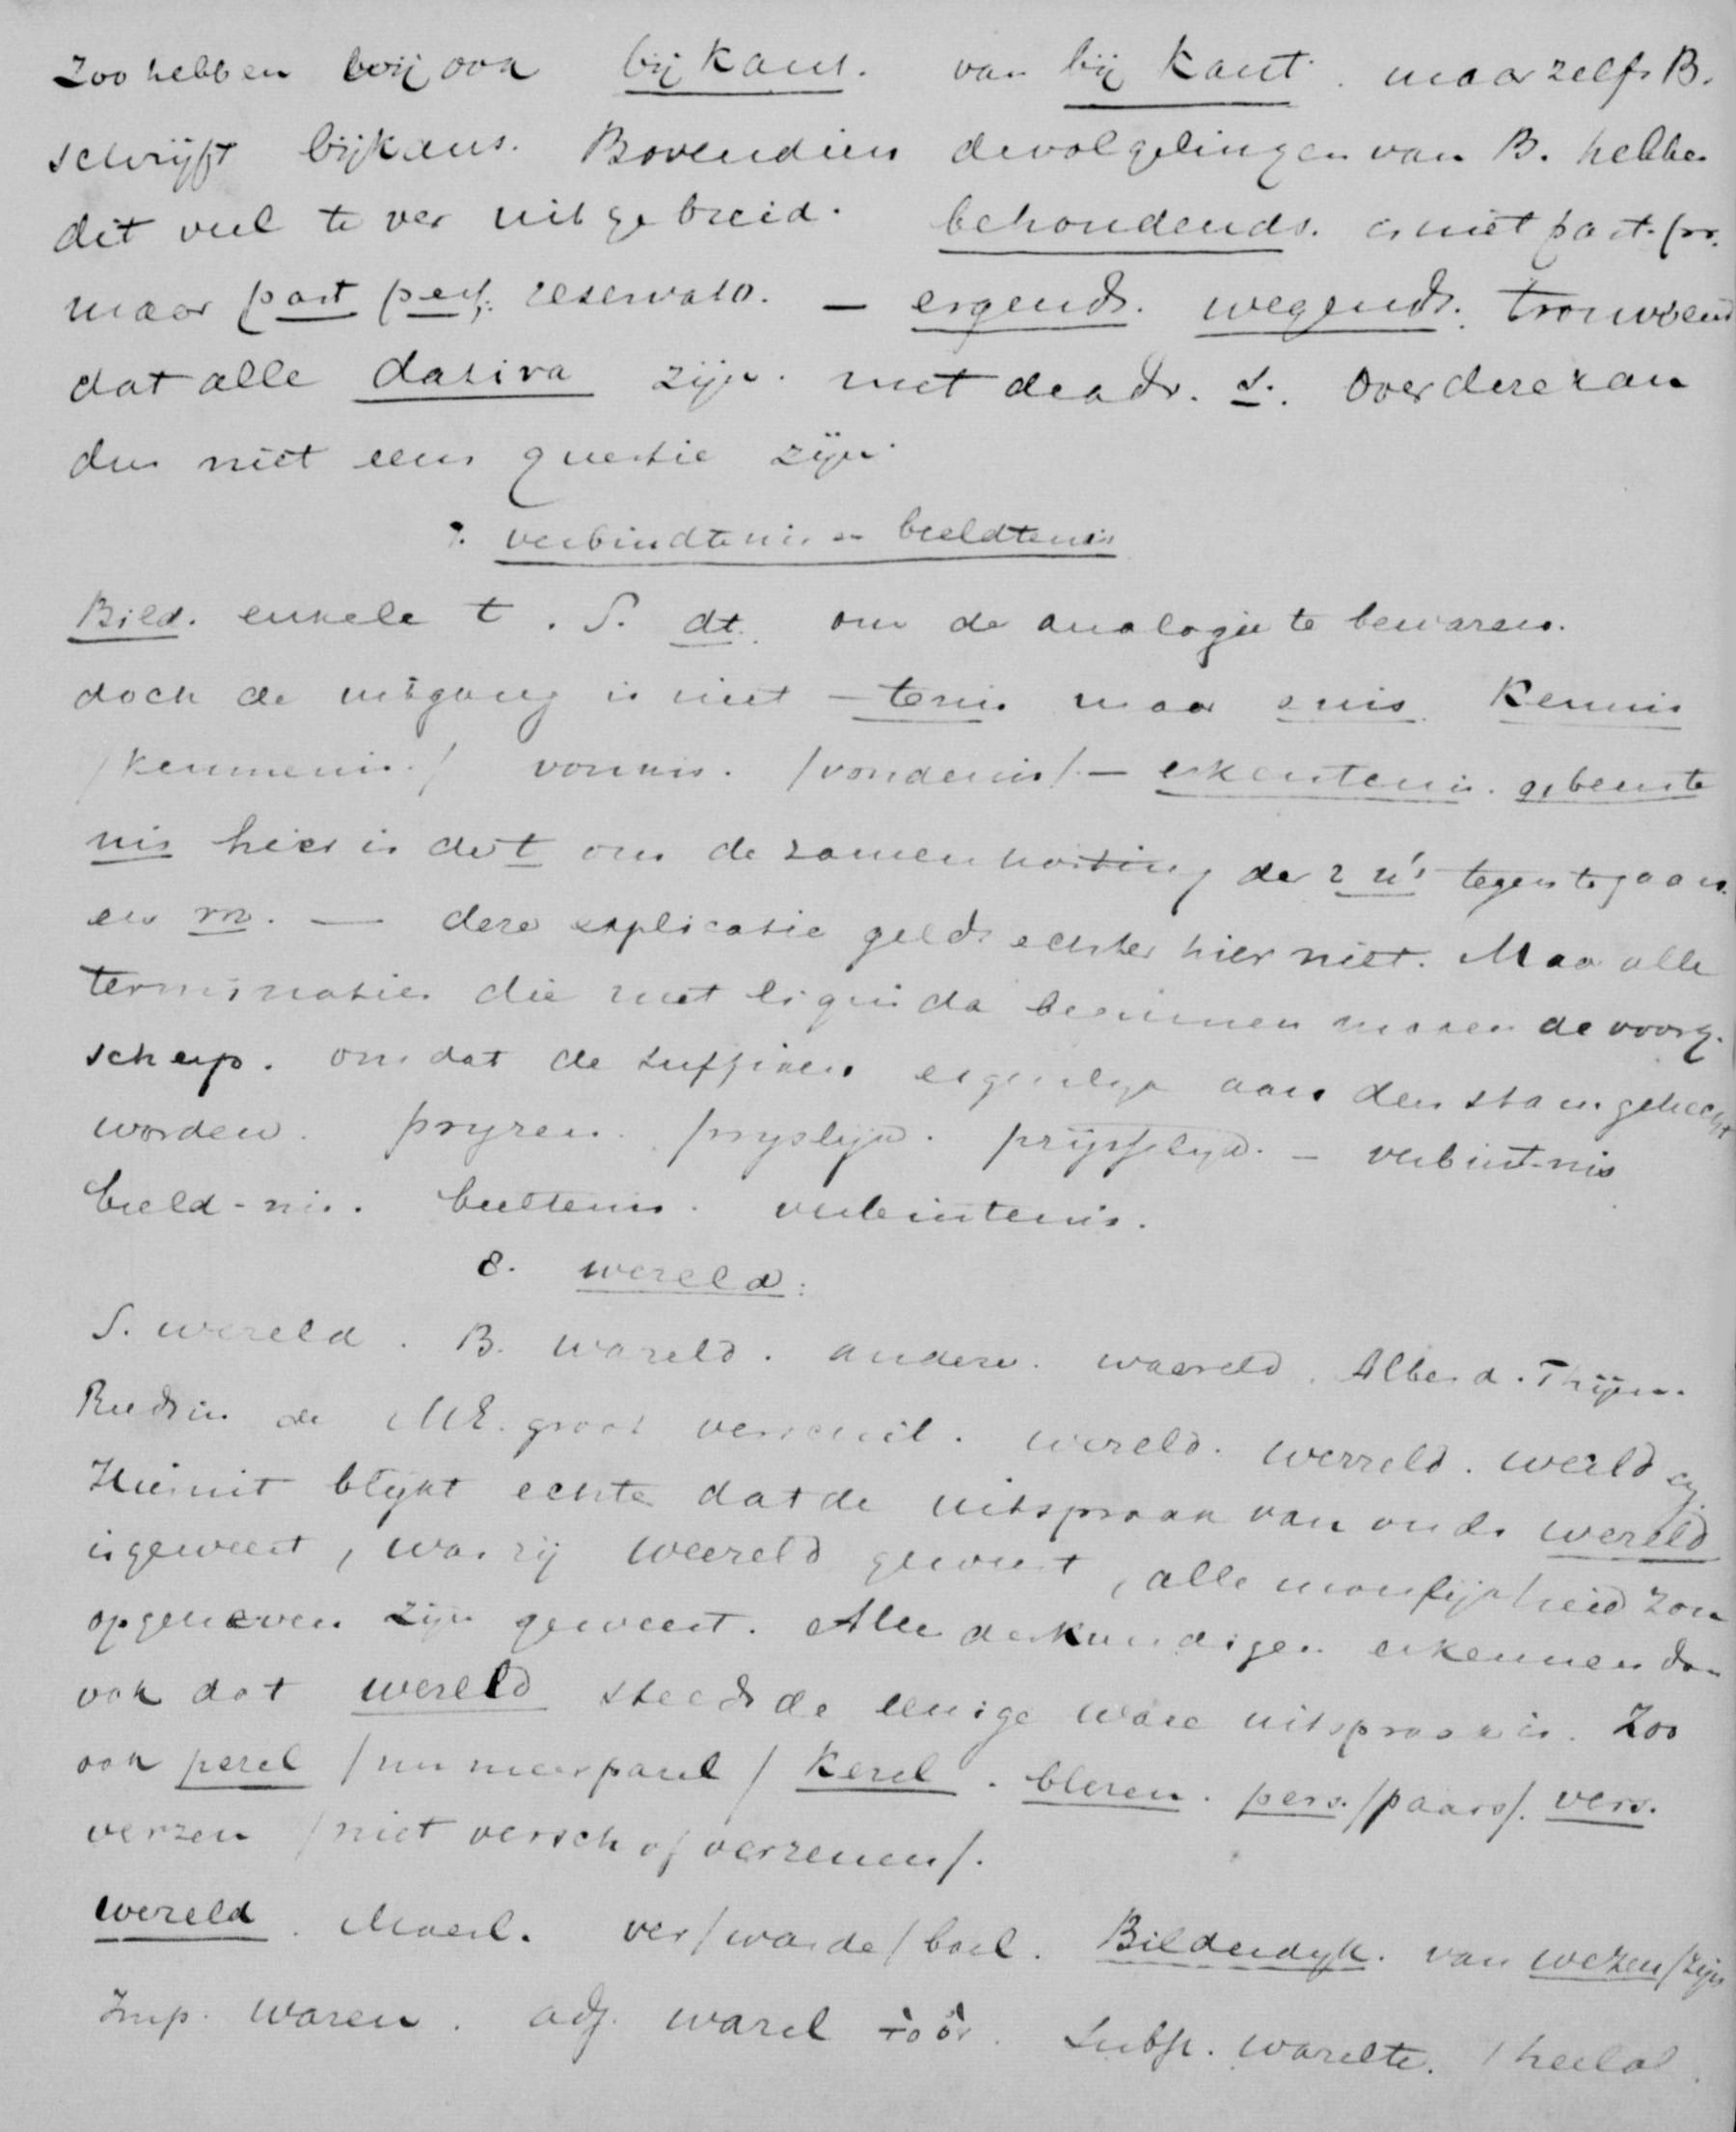 Zoo hebben wij ook bijkans. van bij kant. maar zelfs B.
schrijft bijkans. Bovendien de volgelingen van B. hebben
dit veel te ver uitgebreid. behoudends. is niet part. pr.
maar part perf. reservato. — ergends. wegends. trouwens
dat alle dativa zijn. met de adv. s. Over deze kan
dus niet eens questie zijn.
7. verbindtenis en beeldtenis
Bild. enkele t. S. dt. om de analogie te bewaren.
doch de uitgang is niet — tenis maar enis. Kennis
/kennenis./ vonnis. /vondenis/. — erkentenis. gebeurte
nis hier is de t om de zamenhorting der 2 n's tegen te gaan.
en rn. — deze explicatie geldt echter hier niet. Maar alle
terminaties die met liquida beginnen maken de voorg.
scherp. omdat de suffixen eigenlijk aan den stam gehecht
worden. pryzen. pryslijk. prijsselijk. — verbint-nis
beeld-nis. beeltenis. verbintenis.
8. wereld:
S. wereld. B. wareld. andere. waereld. Alberd. Thijm.
Reeds in de ME. groot verschil. wereld. werreld. werld
Hieruit blijkt echter dat de uitspraak van ouds wereld
is geweest, was zij weereld geweest, alle mogelijkheid zou
opgeheven zijn geweest. Alle deskundigen erkennen dan
ook dat wereld steeds de eenige ware uitspraak is. Zoo
ook perel /nu meer parel/ kerel. bleren. pers. /paars/. vers.
verzen /niet versch of verzenen/.
wereld. Maerl. ver/warde/bol. Bilderdyk. van wezen/zijn
Imp. waren. adj. warel τὸ ὄν. Subst. warelte. 't heelal.